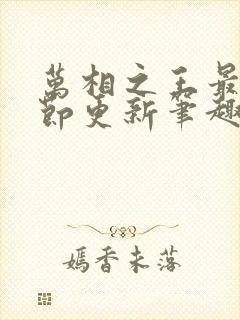 萬相之王最
節更新筆趣
嫣香未落